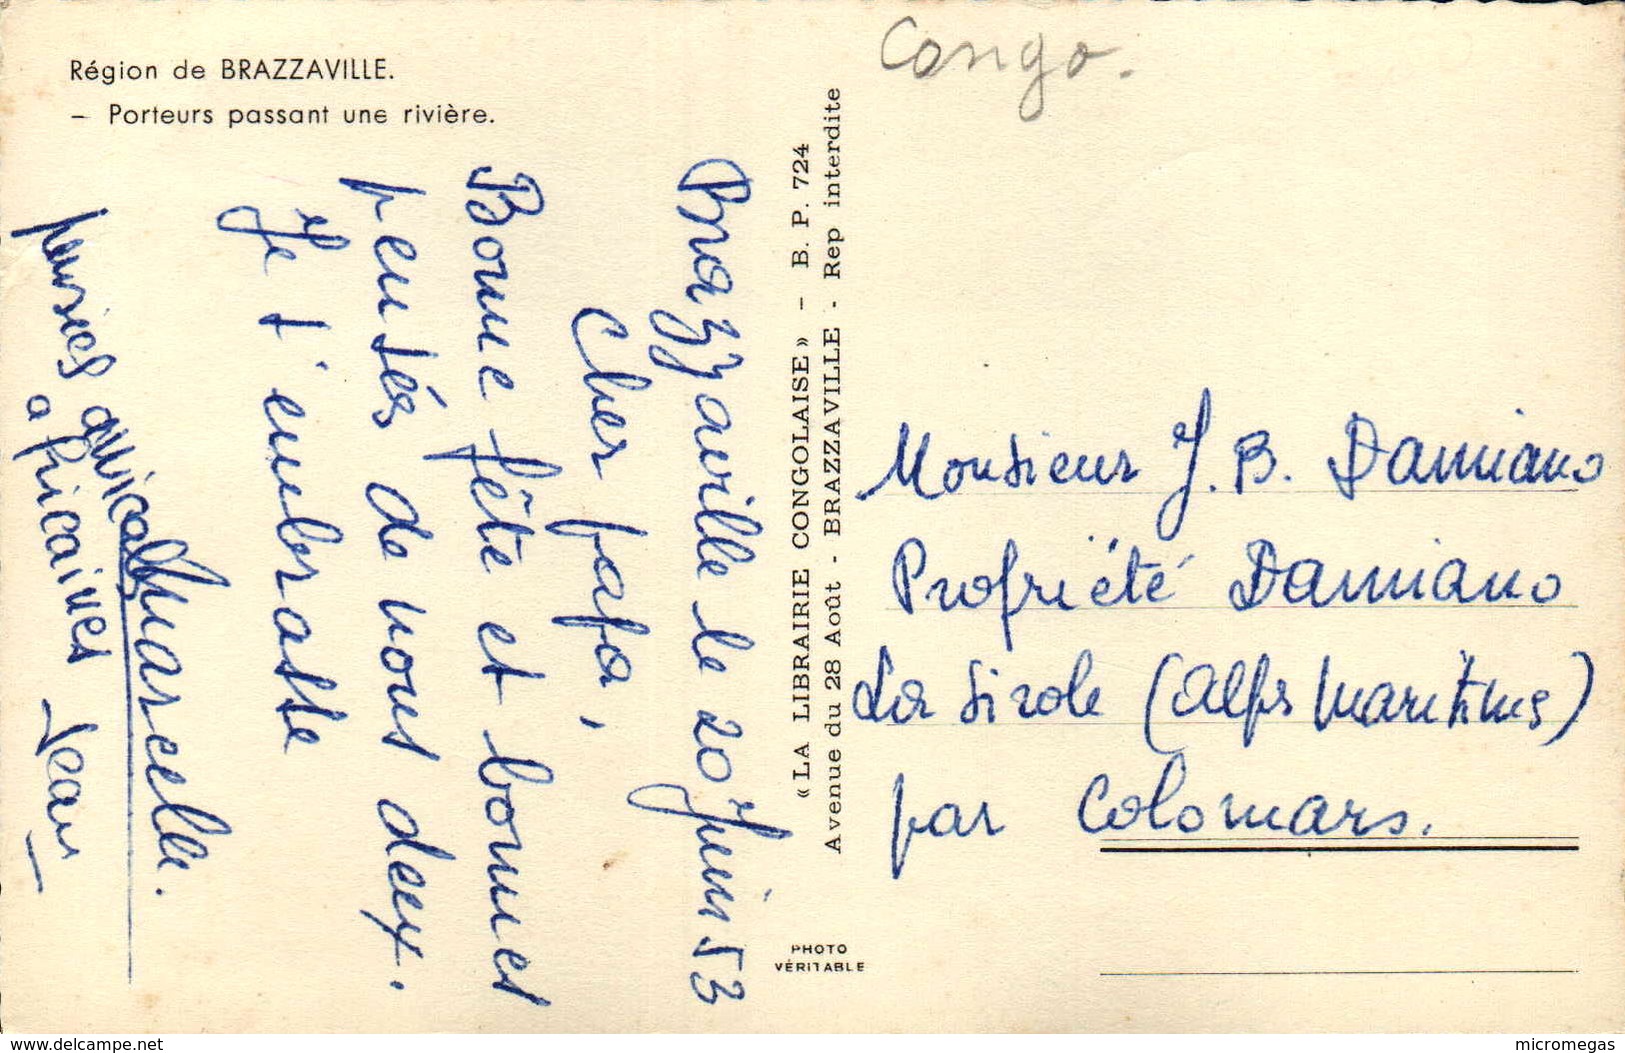 Région de BRAZZAVILLE.
– Porteurs passant une rivière.
Congo.
Brazzaville le 20 Juin 53
Cher papa,
Bonne fête et bonnes
pensées de nous deux.
Je t'embrasse
Marcelle.
pensées amicales
africaines Jean
« LA LIBRAIRIE CONGOLAISE » – B. P. 724
Avenue du 28 Août - BRAZZAVILLE - Rep interdite
PHOTO
VÉRITABLE
Monsieur J. B. Damiano
Propriété Damiano
La Sirole (Alpes Maritimes)
par Colomars.
www.delcampe.net
micromegas